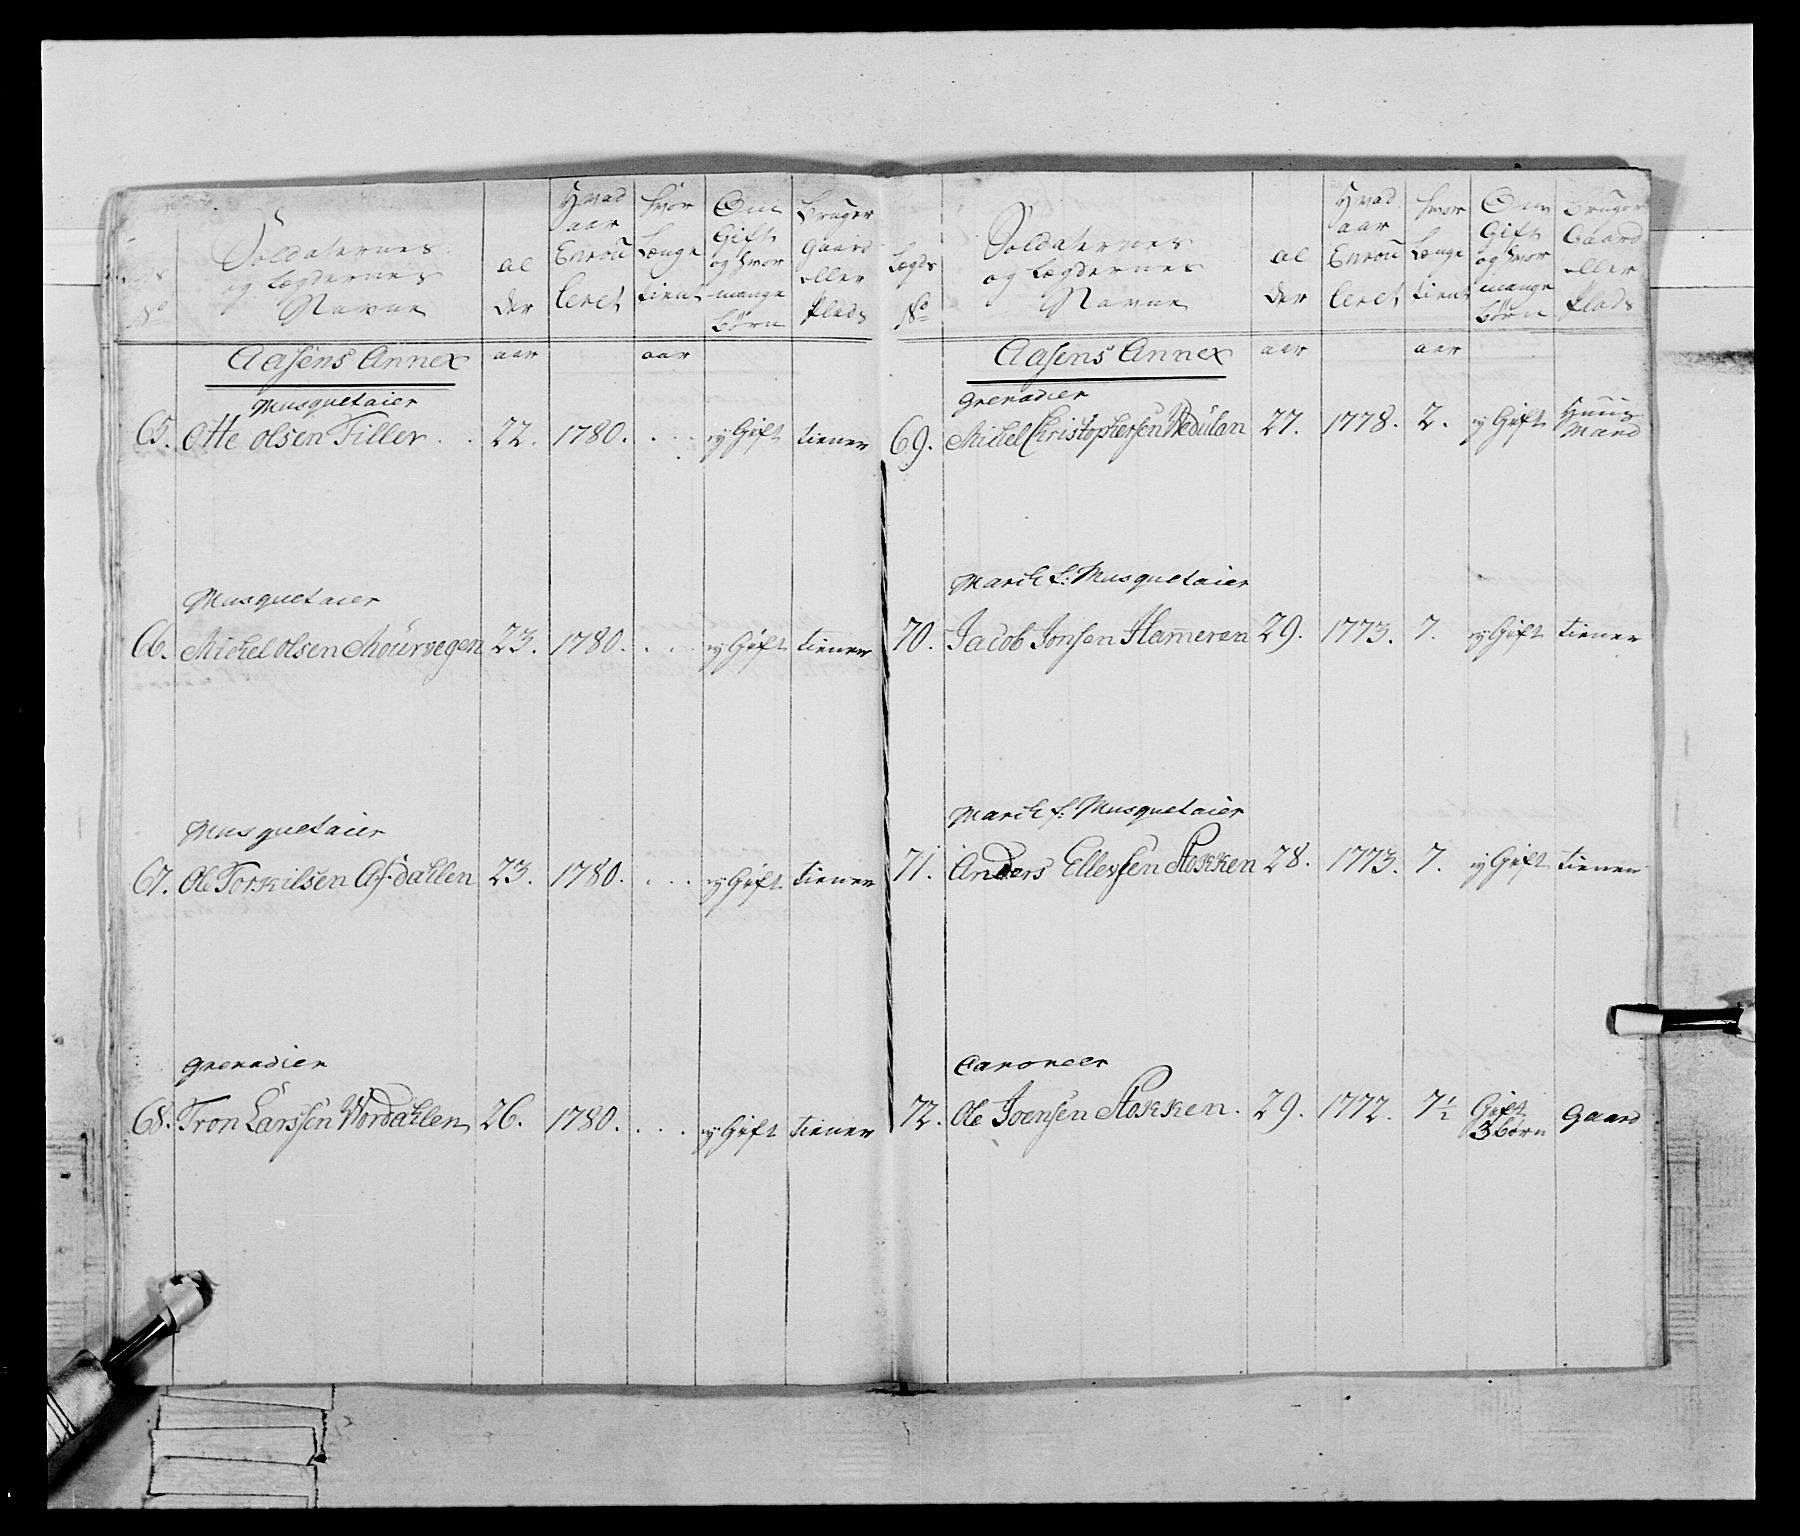 Soldaternes og Lægdernes Navne | al der | Hvad aar Enrou leret | Hvor Længe tient | Om Gift og hvor mange børn | Bruger Gaard eller Plads
Aasens Annex aar aar
Musquetaier
65. Otte Olsen Filler . . 22. 1780. . . . ej Gift tiener
Musquetaier
66. Michel Olsen Mourvegen 23. 1780. . . . ej Gift tiener
Musquetaier
67. Ole Torkilsen Asdahlen 23. 1780. . . . ej Gift tiener
Grenadier
68. Tron Larssen Wordahlen 26. 1780. . . . ej Gift tiener
Lægds No | Soldaternes og Lægdernes Navne | al der | Hvad aar Enrou leret | Hvor Længe tient | Om Gift og hvor mange børn | Bruger Gaard eller Plads
Aasens Annex aar aar
Grenadier
69. Michel Christophersen Wedulan 27. 1778. 2. ej Gift Huus Mand
March f: Musquetaier
70. Jacob Jonsen Hammeren 29. 1773. 7. ej Gift tiener
March f: Musquetaier
71. Anders Ellevsen Stokken 28. 1773. 7. ej Gift tiener
Canoneer
72. Ole Joensen Stokken. 29. 1772. 7½ Gift 3 børn Gaard